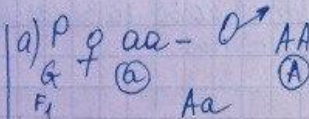 а) P ♀ aa – ♂ AA
G ⓐ Ⓐ
F₁ Aa